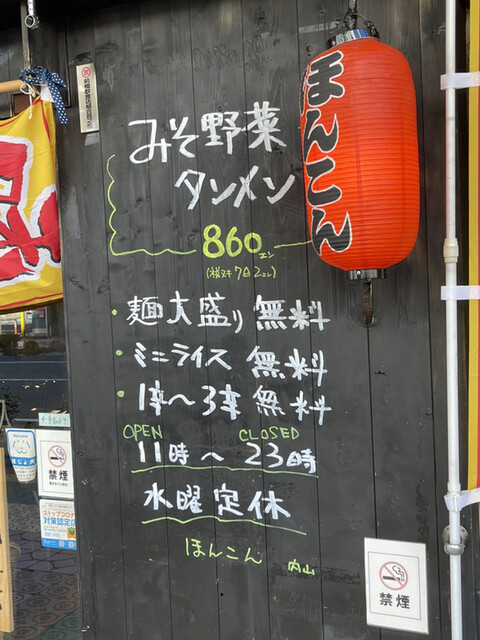 ほんこん
みそ野菜
タンメン
860エン
・麺大盛り 無料
・ミニライス 無料
・1辛〜3辛 無料
OPEN CLOSED
11時〜23時
水曜定休
ほんこん 内山
禁煙
禁煙
ストップコロナ
対策認定店